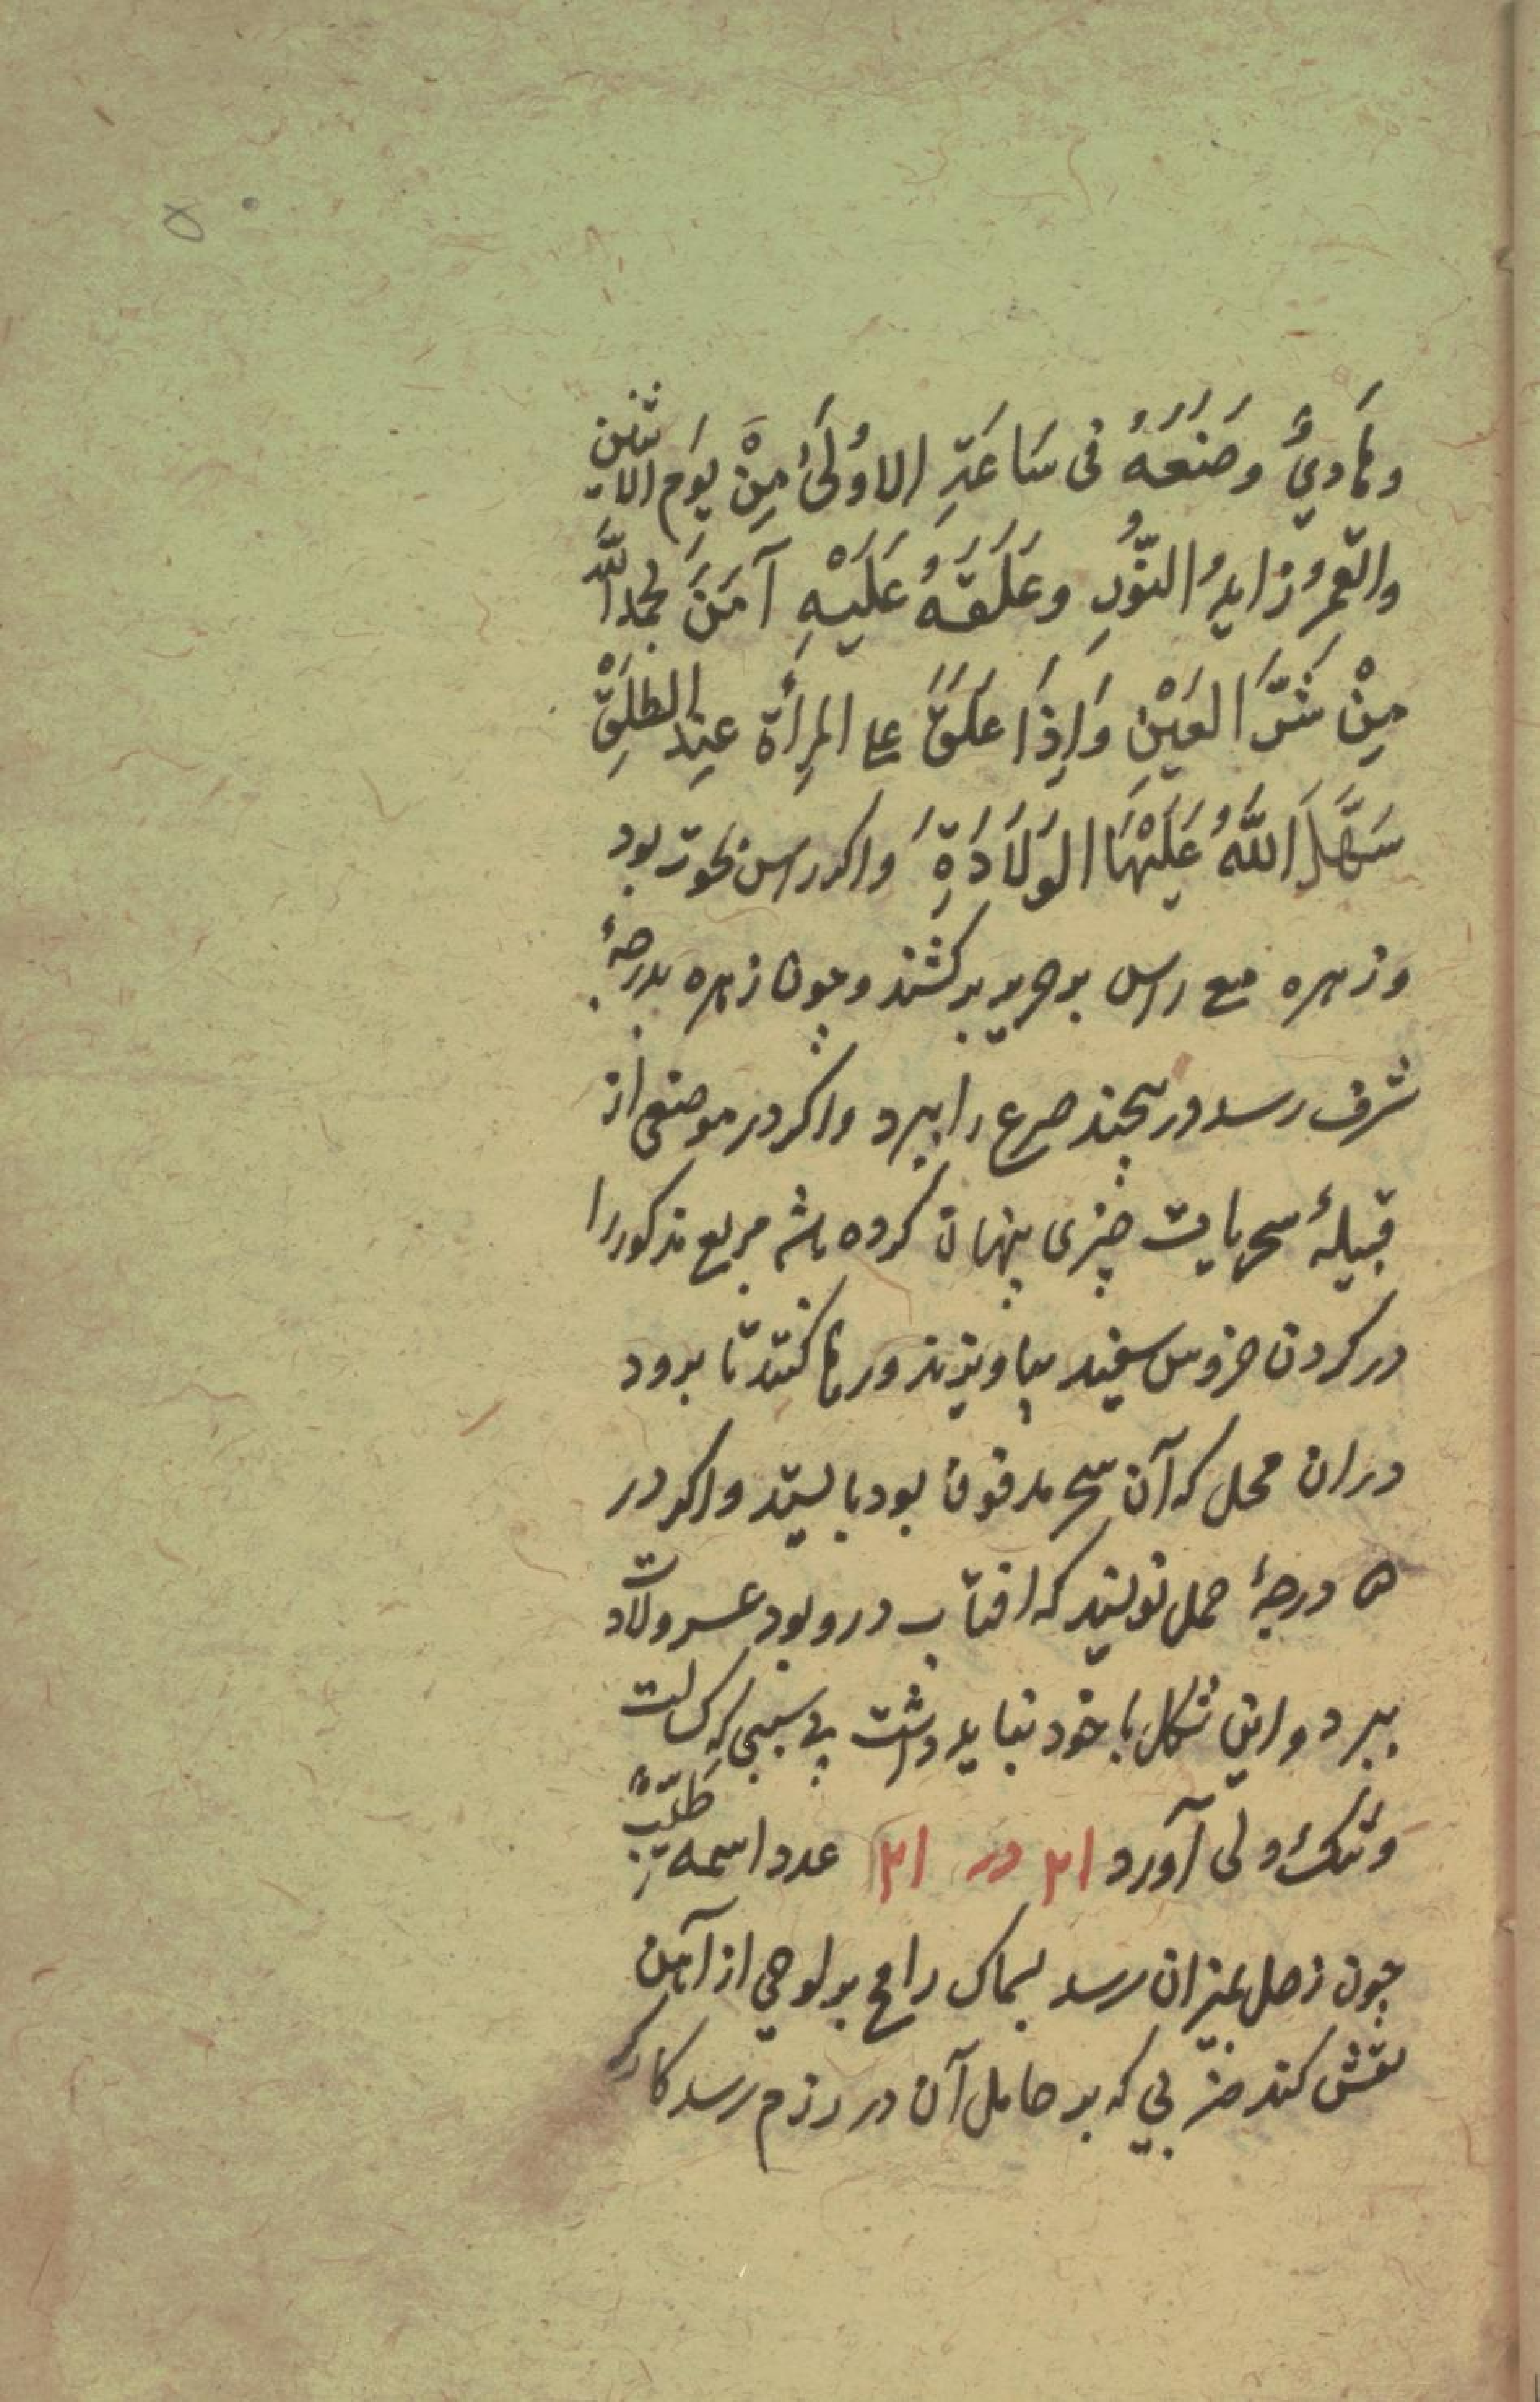 ۵۰
ومَاویٌ وصَنَعَهُ فی سَاعَةِ الاوُلَیٰ مِنْ یَوَم الاثنین
والقمرُ زایدُ النُّورِ وعَلَقَهُ عَلَیْهِ آمَنَ بحمدالله
مِنْ شَرَّ العَیْنِ وَاِذَا عَلَقَ علی المِرأة عِند الطَلْقِ
سَهَّلَ اللهُ عَلَیْهَا الوَلَادَةِ واکر راس بحوت بود
وزهره مع راس بر حریر بر کشند وچون زهره بدرجهٔ
شرف رسد در پیچند صرع را ببرد واکر در موضعی از
قبیلهٔ سحریات چیزی پنهان کرده باشند مربع مذکور را
در کردن خروس سفید بیاویزند ورها کنند تا برود
دران محل که آن سحر مدفون بود بایستد واکر در
ه درجهٔ حمل نویسند که افتاب درو بود عسر ولادت
ببرد واین شکل با خود نباید داشت بی سببی که کسالت
وتنک دلی آورد ۲۱ در ۲۱ عدد اسمه طَیِّبٌ
چون زحل بمیزان رسد بسماک رامح بر لوحی از آهن
نقش کند ضربی که بر حامل آن در رزم رسد کارکر